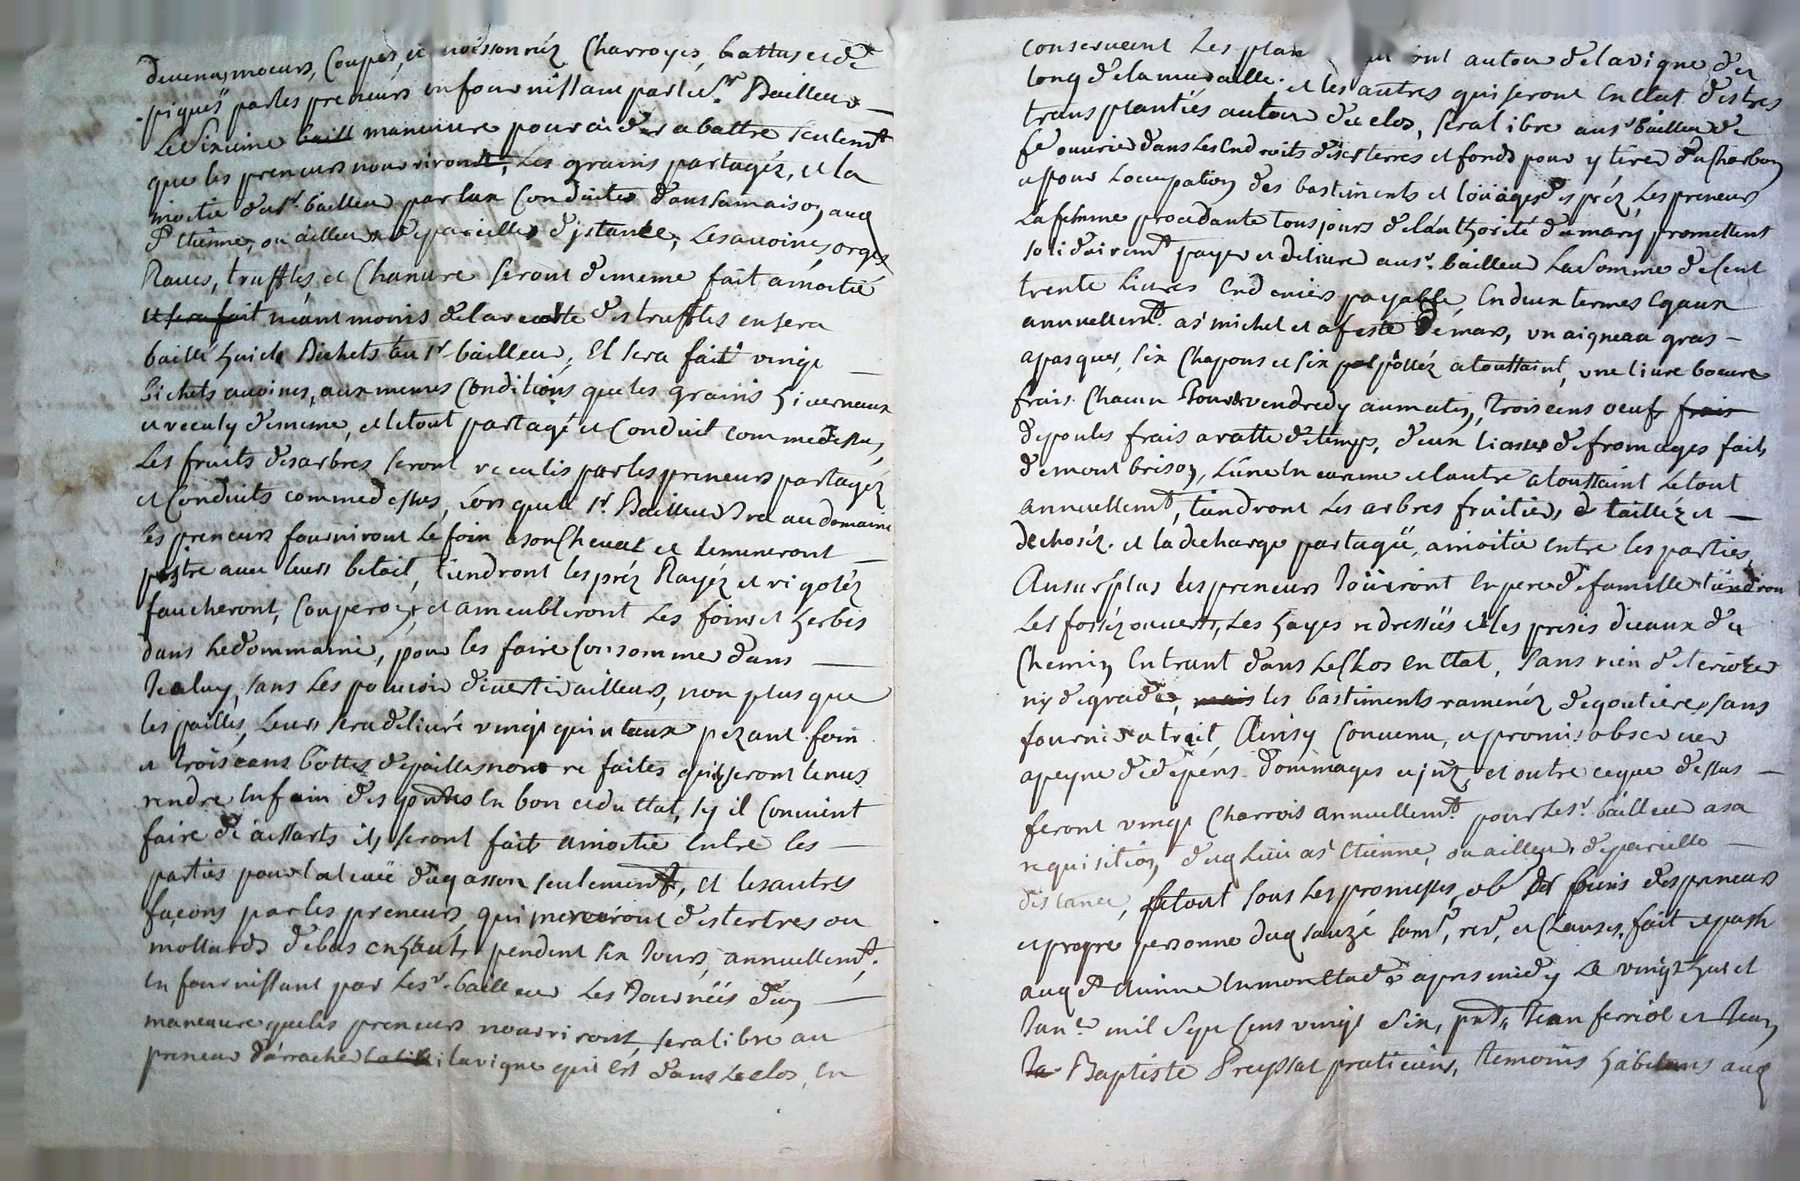 devenus moeurs, Coupés, et moissonnéz Charroyés, battus et dé
piqués par les preneurs en fournissant par led. Sr. Bailleur
Le sixieme baill maneuvre pour aider a battre seulemt
que les preneurs nourriront, Les grains partagéz, et la
moitié du sr. bailleur par eux Conduite dans sa maison aud
St. Etienne, ou ailleurs de pareille distance, Les avoines, orges
Raves, truffles et Chanvre seront de meme fait a moitié
et sera fait néant moins de la recolte des truffles en sera
baillé huict Bichets au sr. bailleur, Et sera fait vingt
bichets avoines, aux memes Conditions que les grains hivernaux
et receuly de meme, et le tout partagé et Conduit comme dessus,
Les fruits des arbres seront receulis par les preneurs partagéz
et Conduits comme dessus, Lors que le sr. Bailleur Ira au domaine
les preneurs fourniront le foin a son Cheval et le meneront
paitre avec leurs betail, tiendront les préz Rayéz et rigoléz
faucheront, Couperont, et ameubleront Les foins et herbes
dans le dommaine, pour les faire Consommer dans
Iceluy, sans Les pouvoir divertir ailleurs, non plus que
les pailles, Leurs sera delivré vingt quintaux pezant foin
et trois cens bottes de pailles non re faites quils seront tenus
rendre En fain des In bon et du Etat, sy il Convient
faire des aissarts ils seront fait a moitié Entre les
parties pour la levée du gasson seulement, et les autres
façons par les preneurs, qui des tertres ou
mollards de bas en haut, pendent six Jours, annuellemt.
en fournissant par Le sr. bailleur Les Journées d'un
maneuvre que les preneurs nourriront, sera libre au
preneur d'arracher la vigne qui Est dans Le clos, En
conservant Les plan ont autour de la vigne, du
long de la muraille, et les autres qui seront En Etat d'estres
transplantés autour du clos, sera libre au sr bailleur de
fe ouvrir dans Les Endroits desd. terres et fonds pour y tirer du Charbon
a pour Loccupation des bastiments et loüages des préz, Les preneurs
La femme procedante tousjours de lauthorité du mary promettent
solidairemt payer et delivrer au sr. bailleur La Somme de Cent
trente Livres En deniers payable En deux termes Egaux
annuellemt. a st michel et a feste de mars, un aigneau gras
a pasques, six Chapons et six polléz a toussaint, une livre boeurre
frais Chacun Jour vendredy au matin, trois cens oeufs frais
de poules frais a ratte de temps, deux liasses de fromages fait
de mont brison, L'une En careme et lautre a toussaint Le tout
annuellemt, tiendront Les arbres fruitiers taillez et
dechoséz. et la decharge partagée, a moitié Entre les parties,
Au surplus les preneurs Joüiront En pere de famille tiendron
Les fosséz ouverts, Les hayes redressées et les prises d'eaux du
Chemin Entrant dans Le Clos en Etat, sans rien deteriorer
ny degrader, mais les bastiments ramenéz de goutieres, sans
fournir a trait, Ainsy Convenu, et promis observer
a peyne de depens dommages et jnt et outre ce que dessus
feront vingt Charrois annuellemt. pour Le sr. bailleur a sa
requisition, dud. Lieu a st Etienne, ou ailleurs de pareille
distance, Le tout sous Les promesses, ob biens des preneurs
et propre personne dud. sauzé soms, res, et Clauses, fait et passé
aud St. Etienne En mon Etude apres midy Le vingt huict
Janer mil sept Cens vingt Six, pnts, Jean ferriol et Jean
Ja Baptiste praticiens, temoins habitans aud